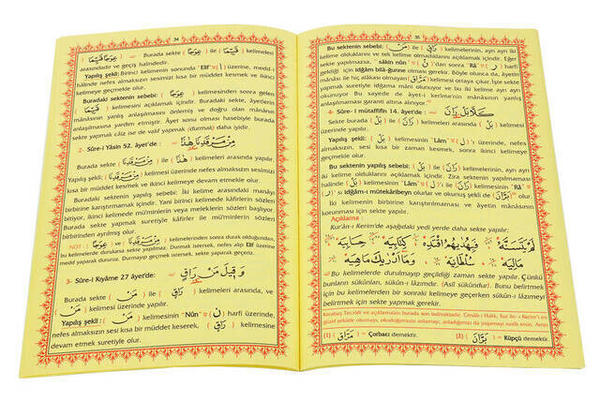 34
Burada sekte ( عِوَجًا ) ile ( قَيِّمًا ) kelimeleri
arasındadır ve geçiş halindedir.
Yapılış şekli: Birinci kelimenin sonunda "Elif" ( ا ) üzerine, medd-i
hâlinde nefes almaksızın sesi kısa bir müddet kesmek ve ikinci
kelimeye geçmekle olur.
Buradaki sektenin sebebi: ( عِوَجًا ) kelimesinden sonra gelen
( قَيِّمًا ) kelimesini açıklamak içindir. Buradaki sekte, âyetlerin
mânâsının yanlış anlaşılmasını önlemiş ve doğru olan mânânın
anlaşılmasına yardım etmiştir. Âyet sonu olması hasebiyle burada
sekte yapmak câiz ise de vakf yapmak (durmak) daha iyidir.
2- Sûre-i Yâsin 52. âyet'de : مِنْ مَرْقَدِنَا هٰذَا
Burada sekte ( مَرْقَدِنَا ) ile ( هٰذَا ) kelimeleri arasında yapılır.
Yapılış şekli: ( مَرْقَدِنَا ) kelimesi üzerinde nefes almaksızın sesimizi
kısa bir müddet kesmek ve ikinci kelimeye devam etmekle olur.
Buradaki sektenin yapılış sebebi: İki kelime arasındaki manâyı
birbirine karıştırmamak içindir. Yani birinci kelimede kâfirlerin sözleri
bitiyor, ikinci kelimede mü'minlerin veya meleklerin sözleri başlıyor.
Burada sekte yapmak suretiyle kâfirler ile mü'minlerin sözleri
birbirinden ayrılmış olur.
NOT: ( مَرْقَدِنَا ) ve ( عِوَجًا ) kelimelerinden sonra durak olduğundan,
bu kelimelerde durulursa sekte yapılmaz. Durmak istersek, nefes alıp Elif üzerine
medd yaparak dururuz. Durmayıp geçmek istersek, sekte yaparak geçeriz.
3- Sûre-i Kıyâme 27 âyet'de: وَقِيلَ مَنْ رَاقٍ
Burada sekte ( مَنْ ) ile ( رَاقٍ ) kelimeleri arasında, ve
( مَنْ ) kelimesi üzerinde yapılır.
Yapılış şekli: ( مَنْ ) kelimesinin "Nûn" ( ن ) harfi üzerinde,
nefes almaksızın sesi kısa bir müddet keserek, ( رَاقٍ ) kelimesine
devam etmek suretiyle olur.
35
Bu sektenin sebebi: ( مَنْ ) ile ( رَاقٍ ) kelimelerinin, ayrı ayrı iki
kelime olduklarını ve tek kelime olmadıklarını açıklamak içindir. Eğer
sekte yapılmazsa, "sâkin nûn" ( نْ ) dan sonra "Râ" ( ر ) harfi
geldiği için idğâm bilâ-gunne olması gerekir. Böyle olunca da, âyetin
mânâsı ile hiç alâkası olmayan ( مَرَّاقٍ ) kelimesi ortaya çıkar. İşte sekte
yapmak suretiyle idğâma mâni olunuyor ve bu iki kelime ayrı ayrı
okunuyor. Bu sayede de âyet-i kerîmenin mânâsının yanlış
anlaşılmasına garanti altına alınıyor.
4- Sûre-i mütaffifin 14. âyet'de — كَلَّا بَلْ رَانَ
Burada sekte ( بَلْ ) ile ( رَانَ ) kelimeleri arasında ( بَلْ ) kelimesi
üzerinde yapılır.
Yapılış şekli: ( بَلْ ) kelimesinin "Lâm" ( ل ) üzerinde, nefes
almaksızın, sesi kısa bir zaman kesmek, sonra ikinci kelimeye
geçmekle olur.
Bu sektenin yapılış sebebi: ( بَلْ ) ile ( رَانَ ) kelimelerinin, ayrı
ayrı iki kelime olduklarını açıklamak içindir. Zira sektenin yapılmaması
halinde ( بَلْ ) kelimesinin "Lâm" ı ( ل ) ile ( رَانَ ) kelimesinin "Râ"
( ر ) sı idğâm-ı mütekâribeyn olurlar ve okunuş şekli de ( بَرَّانَ ) olur.
İki kelimenin birbirine karıştırılmaması ve âyetin mânâsının
korunması için sekte yapılır.
Açıklama :
Kur'ân-ı Kerîm'de aşağıdaki yedi yerde daha sekte yapılır:
لَمْ يَتَسَنَّهْ فَبِهُدٰيهُمُ اقْتَدِهْ كِتَابِيَهْ حِسَابِيَهْ
مَالِيَهْ سُلْطَانِيَهْ وَمَا اَدْرٰيكَ مَاهِيَهْ
Bu kelimelerde durulmayıp geçildiği zaman sekte yapılır. Çünkü
bunların sükûnları, sükûn-ı lâzımdır. (Aslî sükûndur). Bunu belirtmek
için bu kelimelerden bir sonraki kelimeye geçerken sükûn-ı lâzımeyi
belirtmek için sekte yapmak gerekir.
(1) ( مَرَّاقٍ ) = Çorbacı demektir. (2) ( بَرَّانَ ) = Küpçü demektir.